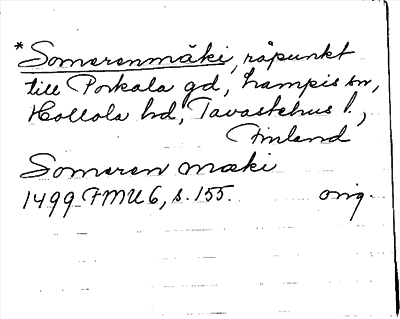 *Somerenmäki, råpunkt
till Porkala gd, Lampis sn,
Hollola hd, Tavastehus l.,
Finland
Someren mæki
1499 FMU 6, s. 155. orig.